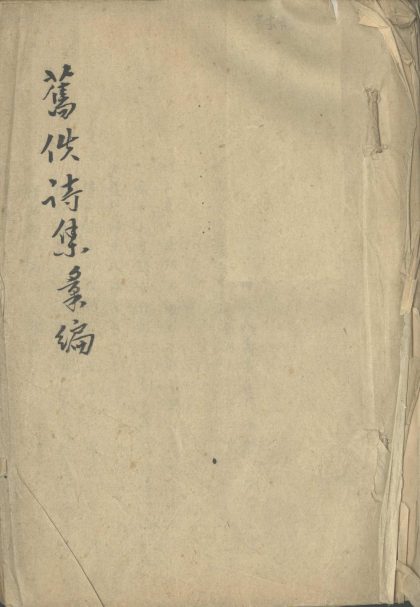 舊佚诗集彙编